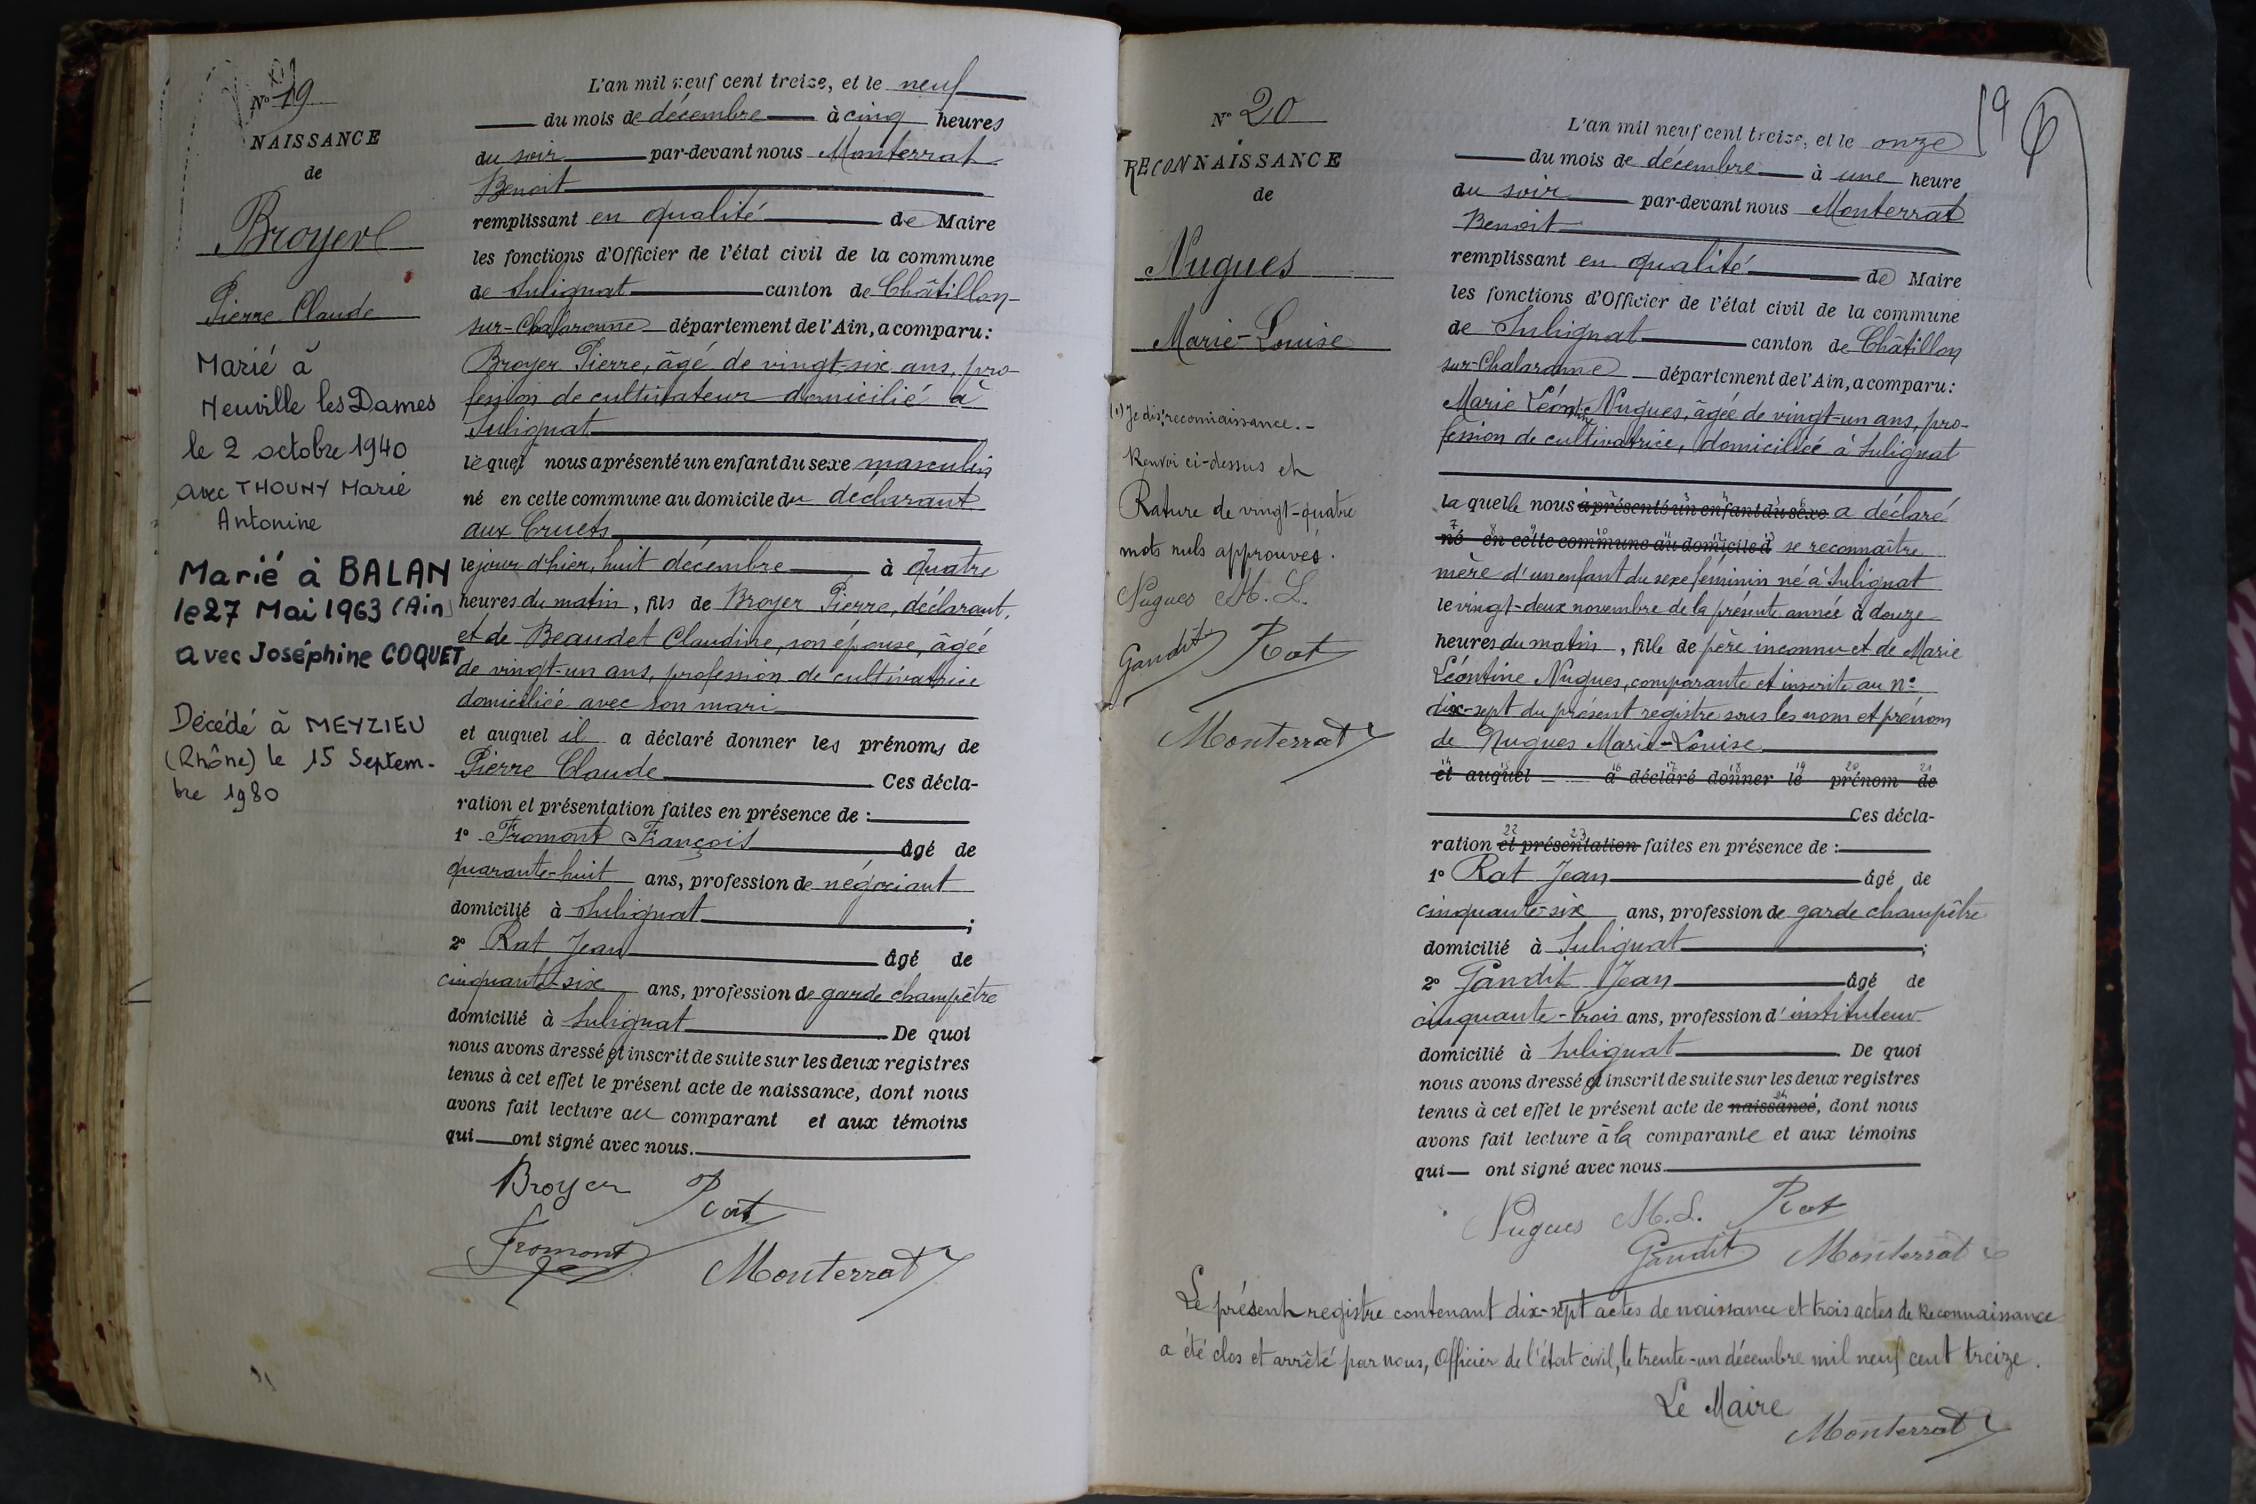 N° 19
NAISSANCE
de
Broyer
Pierre Claude
Marié à
Neuville les Dames
le 2 octobre 1940
avec THOUNY Marie
Antonine
Marié à BALAN
le 27 Mai 1963 (Ain)
avec Joséphine COQUET
Décédé à MEYZIEU
(Rhône) le 15 Septem-
bre 1980
L'an mil neuf cent treize, et le neuf
du mois de décembre à cinq heures
du soir par-devant nous Monterrat
Benoit
remplissant en qualité de Maire
les fonctions d'Officier de l'état civil de la commune
de Sulignat canton de Châtillon-
sur-Chalaronne département de l'Ain, a comparu :
Broyer Pierre, âgé de vingt-six ans, pro-
fession de cultivateur domicilié à
Sulignat
lequel nous a présenté un enfant du sexe masculin
né en cette commune au domicile du déclarant
aux Cruets
le jour d'hier, huit décembre à quatre
heures du matin, fils de Broyer Pierre, déclarant,
et de Beaudet Claudine, son épouse, âgée
de vingt-un ans, profession de cultivatrice
domiciliée avec son mari
et auquel il a déclaré donner les prénoms de
Pierre Claude Ces décla-
ration et présentation faites en présence de :
1° Fromont François âgé de
quarante-huit ans, profession de négociant
domicilié à Sulignat ;
2° Rat Jean âgé de
cinquante-six ans, profession de garde champêtre
domicilié à Sulignat De quoi
nous avons dressé et inscrit de suite sur les deux registres
tenus à cet effet le présent acte de naissance, dont nous
avons fait lecture au comparant et aux témoins
qui ont signé avec nous.
Broyer Rat
Fromont Monterrat
19
N° 20
RECONNAISSANCE
de
Nugues
Marie-Louise
(1) Je dis: reconnaissance.-
Renvoi ci-dessus et
Rature de vingt-quatre
mots nuls approuvés.
Nugues M. L.
Gandit Rat
Monterrat
L'an mil neuf cent treize, et le onze
du mois de décembre à une heure
du soir par-devant nous Monterrat
Benoit
remplissant en qualité de Maire
les fonctions d'Officier de l'état civil de la commune
de Sulignat canton de Châtillon
sur-Chalaronne département de l'Ain, a comparu :
Marie Léontine Nugues, âgée de vingt-un ans, pro-
fession de cultivatrice, domiciliée à Sulignat
laquelle nous a présenté un enfant du sexe a déclaré
né en cette commune au domicile d se reconnaître
mère d'un enfant du sexe féminin né à Sulignat
le vingt-deux novembre de la présente année à douze
heures du matin, fille de père inconnu et de Marie
Léontine Nugues, comparante et inscrite au n°
dix-sept du présent registre sous les nom et prénom
de Nugues Marie-Louise
et auquel a déclaré donner le prénom de
Ces décla-
ration et présentation faites en présence de :
1° Rat Jean âgé de
cinquante-six ans, profession de garde champêtre
domicilié à Sulignat ;
2° Gandit Jean âgé de
cinquante-trois ans, profession d'instituteur
domicilié à Sulignat De quoi
nous avons dressé et inscrit de suite sur les deux registres
tenus à cet effet le présent acte de naissance, dont nous
avons fait lecture à la comparante et aux témoins
qui ont signé avec nous.
Nugues M. L. Rat
Gandit Monterrat
Le présent registre contenant dix-sept actes de naissance et trois actes de Reconnaissance
a été clos et arrêté par nous, Officier de l'état civil, le trente-un décembre mil neuf cent treize.
Le Maire
Monterrat